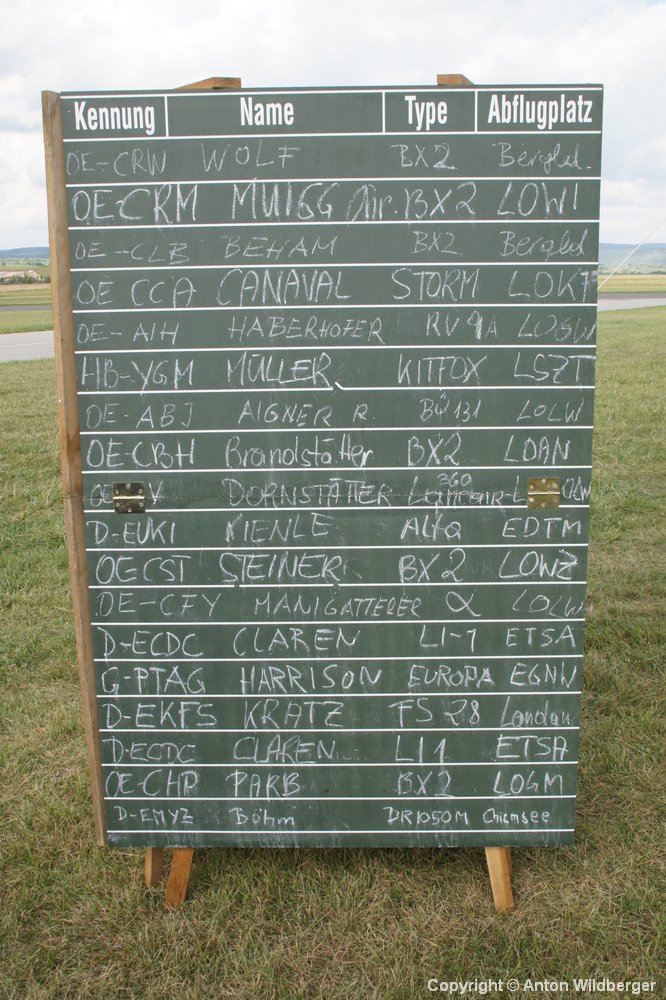 Kennung Name Type Abflugplatz
OE-CRW WOLF BX2
OE-CRM MUIGG Chr. BX2 LOWI
OE-CLB BEHAM BX2
OE CCA CANAVAL STORM
OE-AIH HABERHOFER RV9A LOGW
HB-YGM MÜLLER KITFOX LSZT
OE-ABJ AIGNER R. BÜ131 LOLW
OE-CBH Brandstätter BX2 LOAN
DORNSTÄTTER Lancair 360
D-EUKI KIENLE EDTM
OE CST STEINER BX2 LOWZ
OE-CFY MANIGATTERER α LOLW
D-ECDC CLAREN LI-1 ETSA
G-PTAG HARRISON EUROPA EGNW
D-EKFS KRATZ FS 28 Landau
D-ECDC CLAREN LI 1 ETSA
OE-CHP PARB BX2 LOGM
D-EMYZ Böhm DR1050M Chiemsee
Copyright © Anton Wildberger